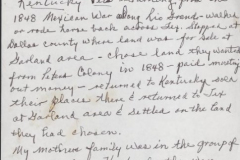 Kentucky
1848 Mexican War along Rio Grande - walked
or rode horse back across Tex, stopped at
Dallas county where land was for sale at
Garland area - chose land they wanted
from Peters Colony in 1848 - paid
out money - returned to Kentucky sold
their places there & returned to Tex
at Garland area & settled on the land
they had chosen.
My mothers family was in the group of